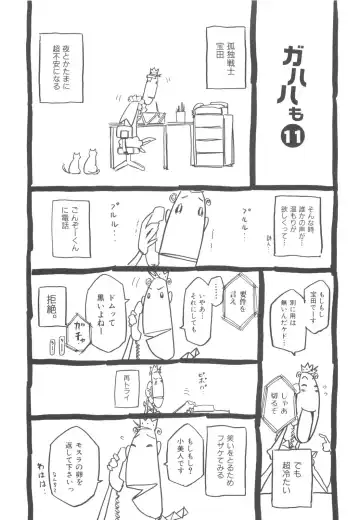 ガハハも
11
孤独戦士
宝田
夜とかたまに
超不安になる
そんな時、
誰かの声が…
温もりが
欲しくって…
プルル…
プルル…
ごんぞーくん
に電話
もしもしー
宝田でーす
別に用は
無いんだケドー
じゃあ
切るぞ
でも
超冷たい
要件を
言え
いやあー
それにしても
ドムって
黒いよねー
ガチャ
拒絶。
ピポパ
再トライ
笑いをとるため
フザケてみる
もしもし?
小美人です
モスラの卵を
返して下さいっ
なんちて
わはは…